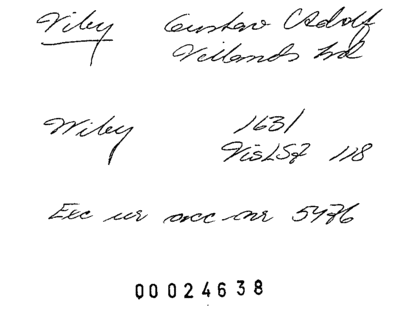 Viby Gustav Adolf
Vetlanda hd
Wiby 1631
VisLSZ 118
Exc ur acc nr 5476
00024638